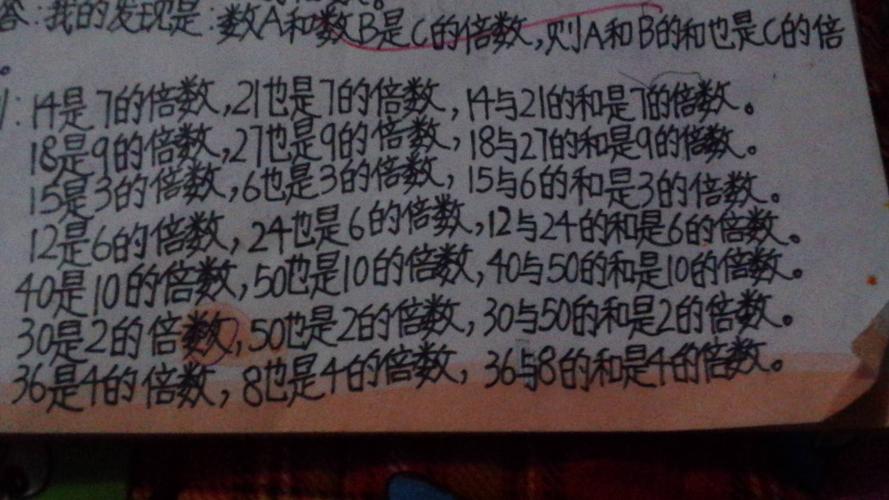 答：我的发现是：数A和数B是C的倍数，则A和B的和也是C的倍
。
：14是7的倍数，21也是7的倍数，14与21的和是7的倍数。
18是9的倍数，27也是9的倍数，18与27的和是9的倍数。
15是3的倍数，6也是3的倍数，15与6的和是3的倍数。
12是6的倍数，24也是6的倍数，12与24的和是6的倍数。
40是10的倍数，50也是10的倍数，40与50的和是10的倍数。
30是2的倍数，50也是2的倍数，30与50的和是2的倍数。
36是4的倍数，8也是4的倍数，36与8的和是4的倍数。